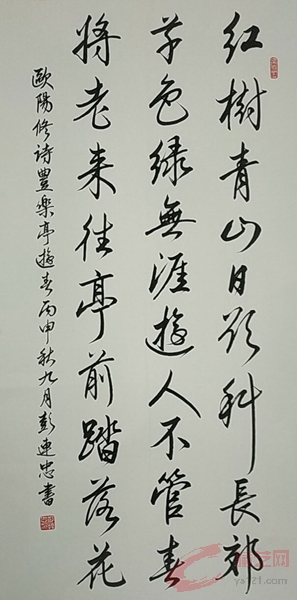 红樹青山日欲科長郊
草色绿無涯遊人不管春
将老来往亭前踏落花
歐陽修诗豐樂亭遊春丙申秋九月彭連忠書
ys121.com